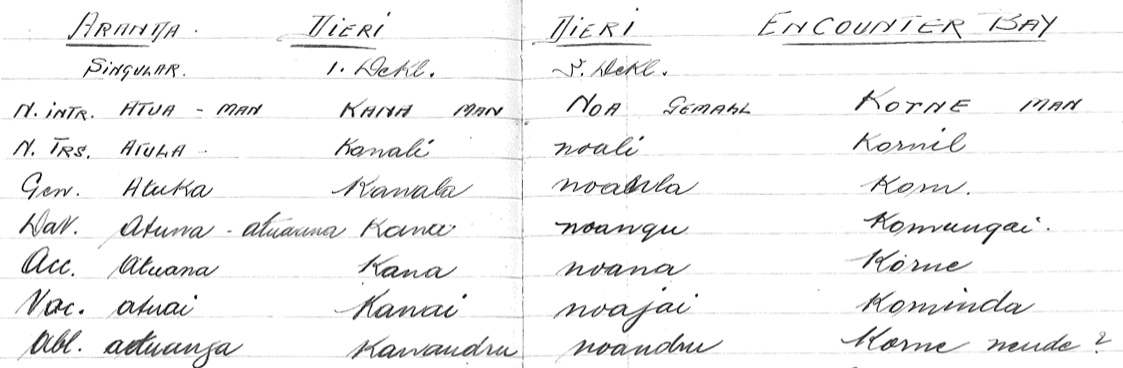 ARANDA. DIERI DIERI ENCOUNTER BAY
SINGULAR. 1. Dekl. 5. Dekl.
N. INTR. ATUA - MAN KANA MAN NOA GEMAHL KORNE MAN
N. TRS. ATULA Kanali noali Kornil
Gen. Atuka Kanala Korn.
Dat. Atuna - atuauna noangu Kornungai.
Acc. Atuana Kana noana Korne
Voc. atuai Kanai noajai Korninda
Abl. atuanga Kanandru noandru Korne nende ?